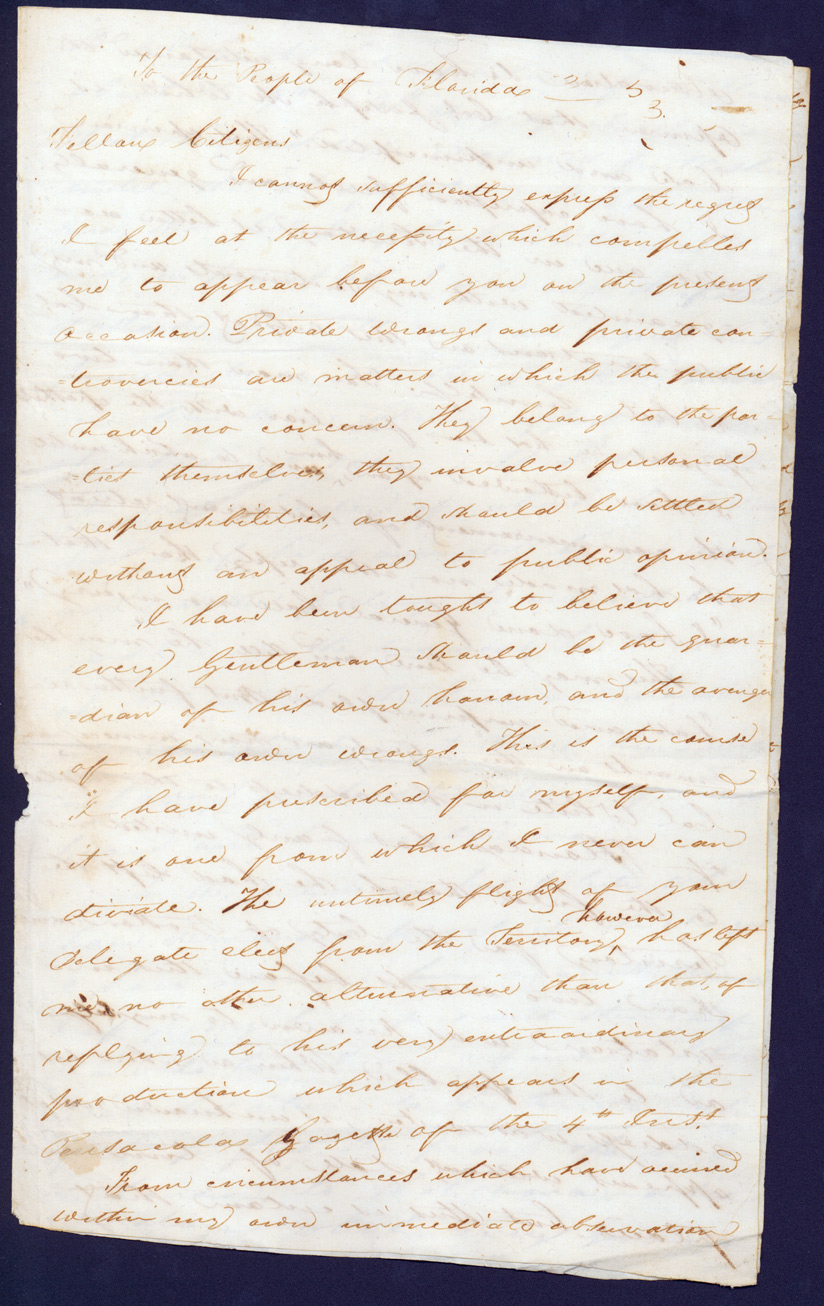 To the People of Florida
3.
Fellow Citizens
I cannot sufficiently express the regret
I feel at the necessity which compelles
me to appear before you on the present
occasion. Private wrongs and private con=
=trovercies are matters in which the public
have no concern. They belong to the par=
=ties themselves, they involve personal
responsibilities, and should be settled
without an appeal to public opinion.
I have been tought to believe that
every Gentleman should be the guar=
=dian of his own honour, and the avenger
of his own wrongs. This is the course
I have prescribed for myself, and
it is one from which I never can
diviate. The untimely flight of your
however
Delegate elect from the Territory, ‸ has left
me no other alternative than that, of
replying to his very extraordinary
production which appears in the
Pensacola Gazette of the 4th Inst.
From circumstances which have occured
within my own immediate observation